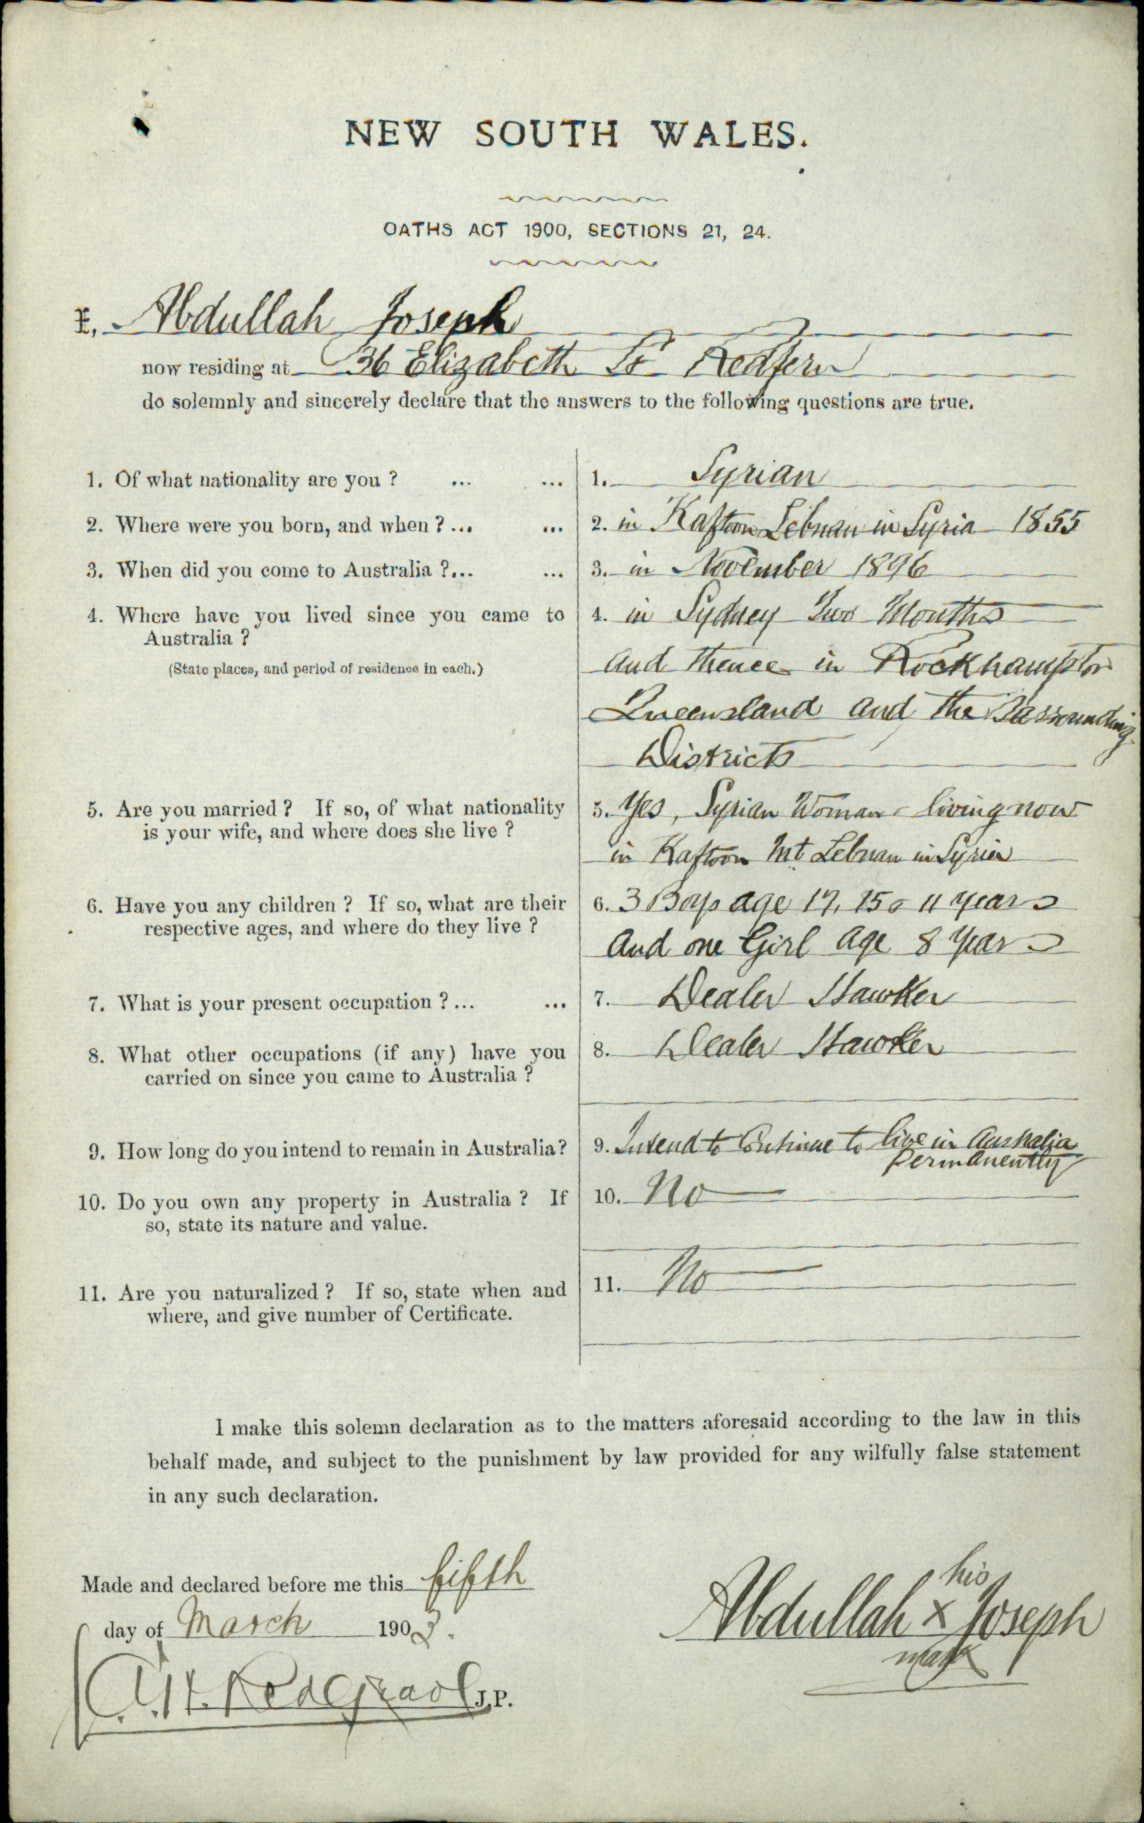 NEW SOUTH WALES.
OATHS ACT 1900, SECTIONS 21, 24.
I, Abdullah Joseph
now residing at 36 Elizabeth St Redfern
do solemnly and sincerely declare that the answers to the following questions are true.
1. Of what nationality are you ? ... ... 1. Syrian
2. Where were you born, and when ? ... ... 2. in Kaftoon Lebnan in Syria 1855
3. When did you come to Australia ?... ... 3. in November 1896
4. Where have you lived since you came to 4. in Sydney Two Months
Australia ?
(State places, and period of residence in each.) and thence in Rockhampton
Queensland and the Surrounding
Districts
5. Are you married ? If so, of what nationality 5. Yes, Syrian Woman living now
is your wife, and where does she live ? in Kaftoon Mt Lebnan in Syria
6. Have you any children ? If so, what are their 6. 3 Boys age 17, 15 & 11 years
respective ages, and where do they live ? and one Girl age 8 years
7. What is your present occupation ? ... ... 7. Dealer Hawker
8. What other occupations (if any) have you 8. Dealer Hawker
carried on since you came to Australia ?
9. How long do you intend to remain in Australia? 9. Intend to Continue to live in Australia
permanently
10. Do you own any property in Australia ? If 10. No
so, state its nature and value.
11. Are you naturalized ? If so, state when and 11. No
where, and give number of Certificate.
I make this solemn declaration as to the matters aforesaid according to the law in this
behalf made, and subject to the punishment by law provided for any wilfully false statement
in any such declaration.
Made and declared before me this fifth
day of March 1903.
his
Abdullah X Joseph
mark
A.H. Redgrave J.P.